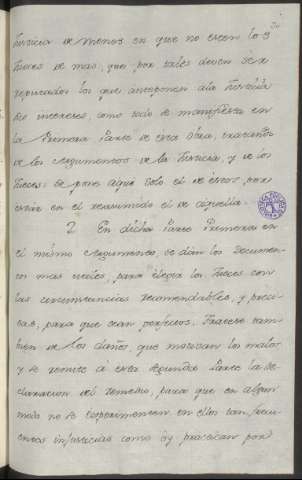 Justicia de menos en que no esten los
Jueces de mas; que por tales deven ser
reputados los que anteponen ála Justicia
sus intereses, como todo se manifiesta en
la Primera Parte de esta Obra, tratando
de los Argumentos de la Justicia, y de los
Jueces: se pone aqui solo el de éstos, por
estar en el resumido el de aquella.
2 En dicha Parte Primera en
el mismo Argumento, se dán los Documen
tos mas utiles, para elegir los Jueces con
las circunstancias recomendables, y preci
sas, para que sean perfectos. Tratase tam
bien de los daños, que causan los malos
y se remite a esta Segunda Parte la de
claracion del remedio, para que en algun
modo no se experimenten en ellos tan frecu
entes injusticias como oy practican por